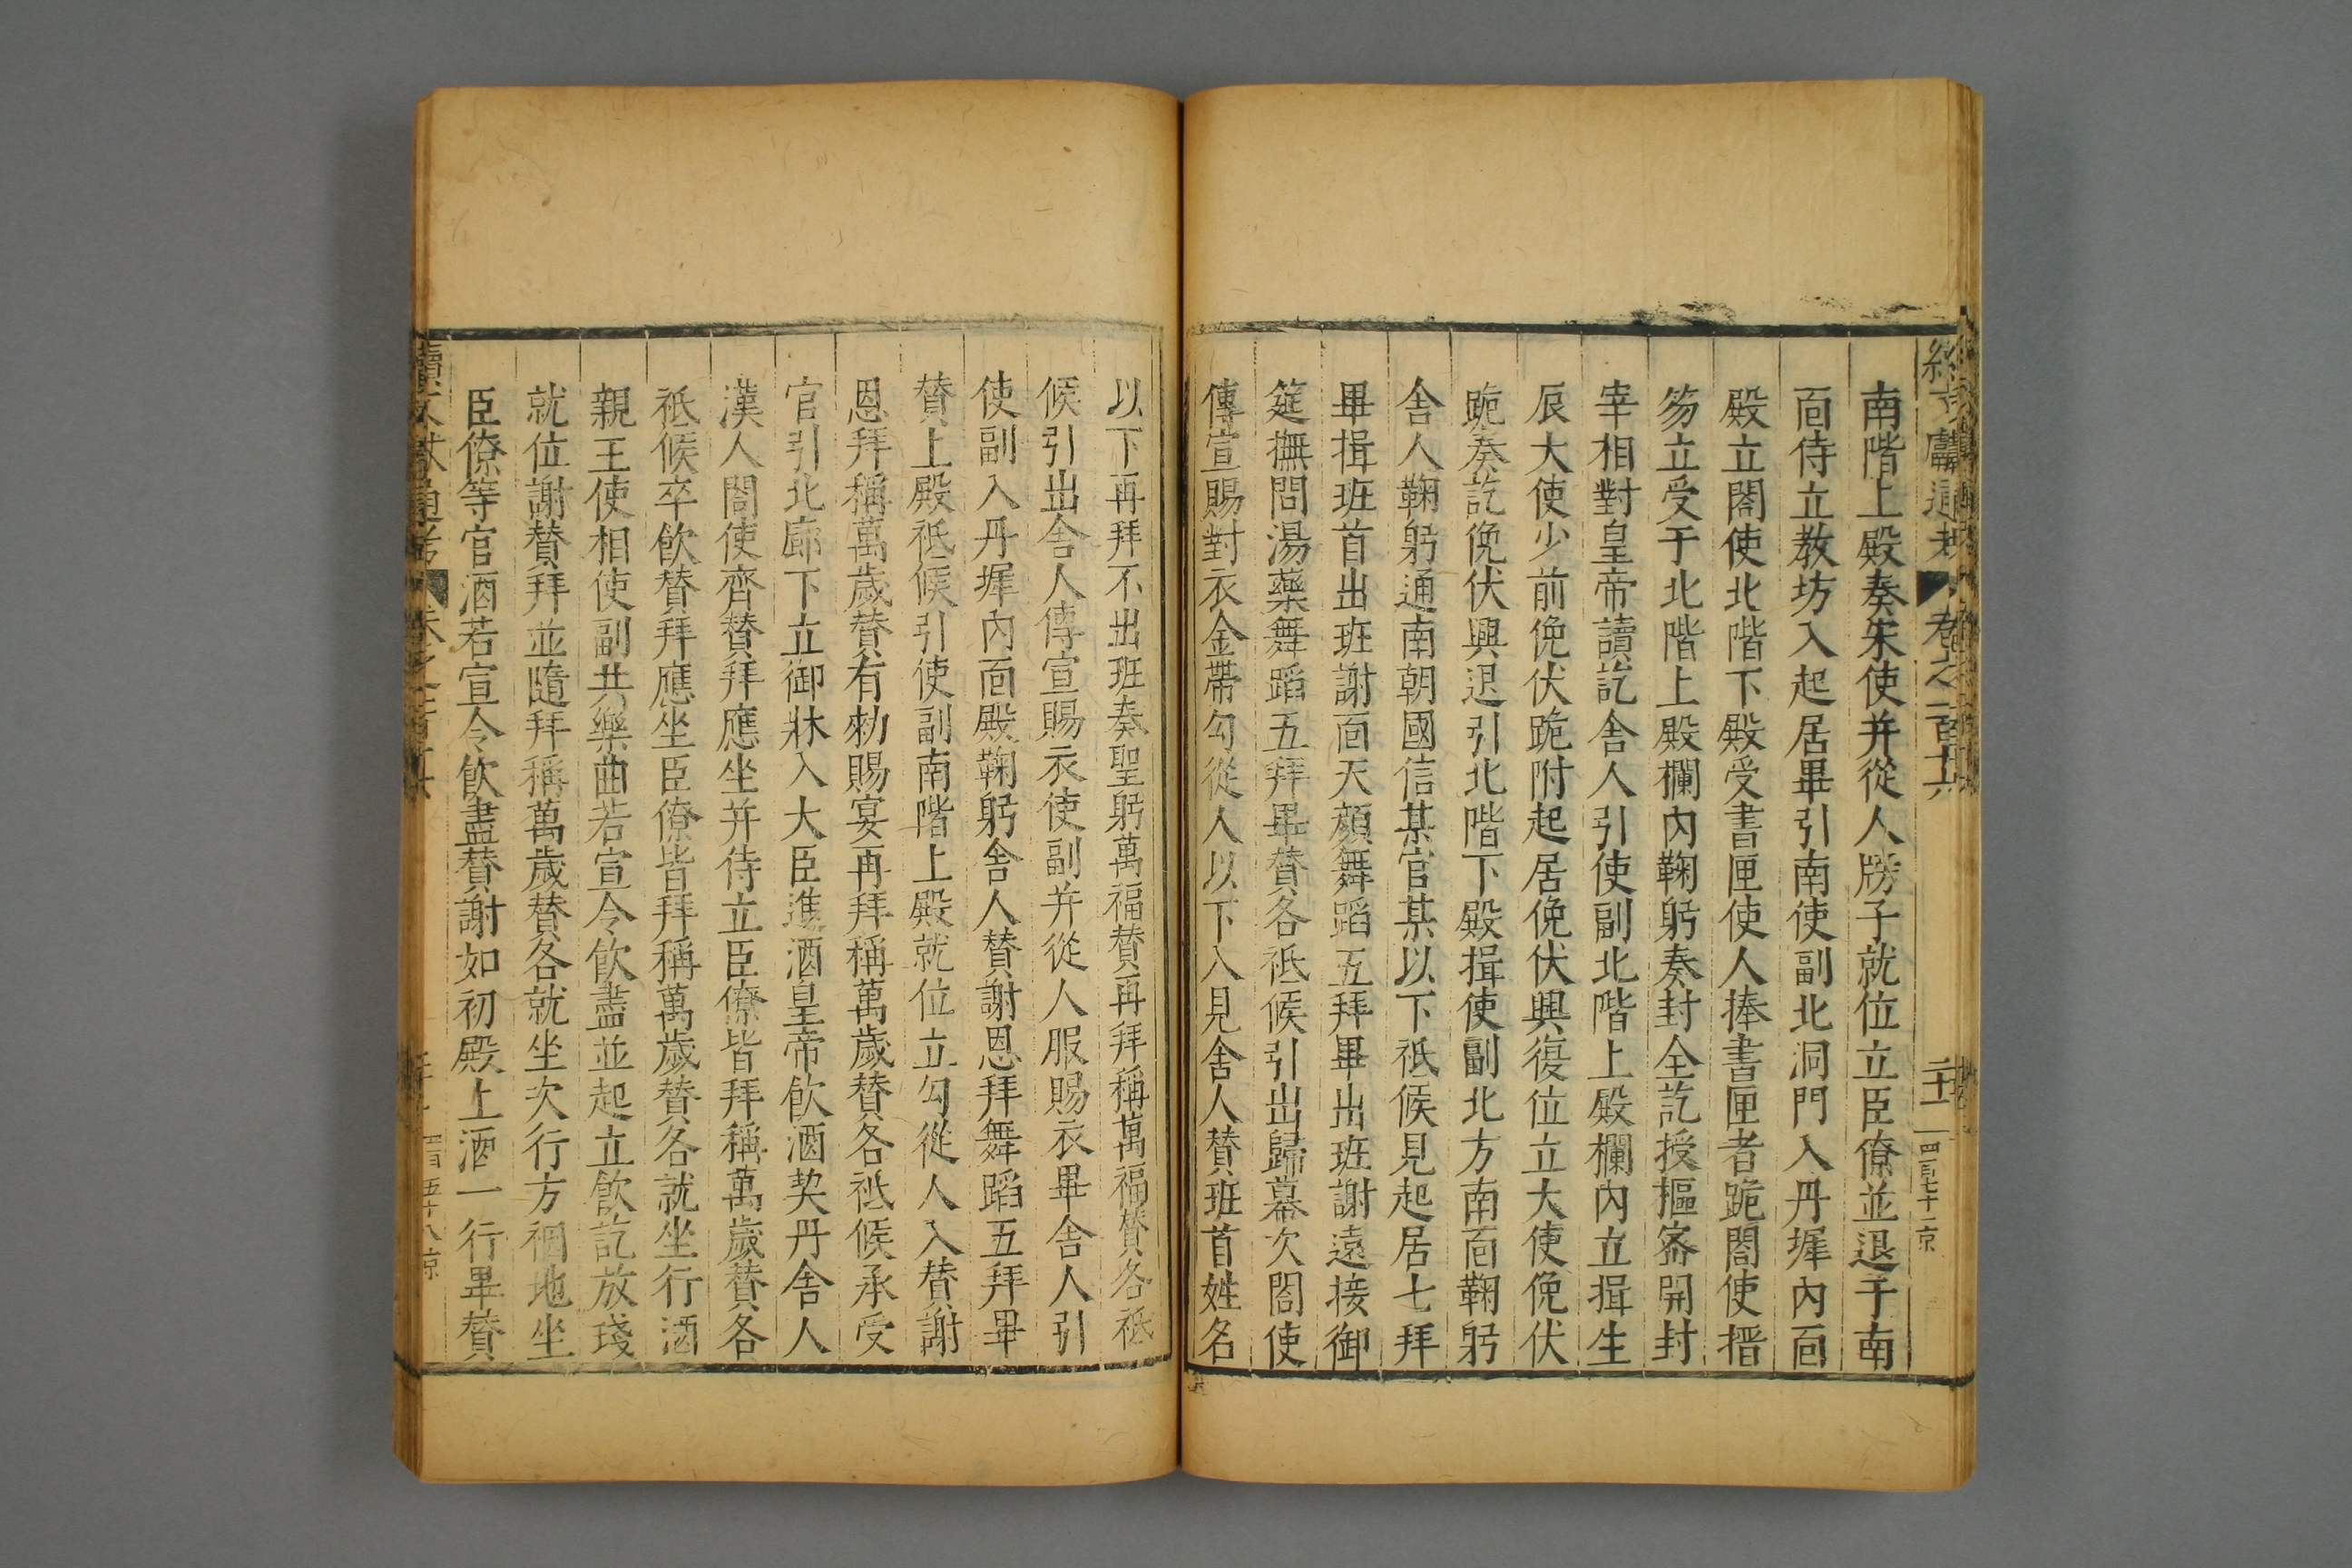 南階上殿奏朱使并從人牓子就位立臣僚並退于南
靣侍立教坊入起居畢引南使副北洞門入丹墀內靣
殿立閤使北階下殿受書匣使人捧書匣者跪閤使搢
笏立受于北階上殿欄內鞠躬奏封全訖授摳宻開封
宰相對皇帝讀訖舍人引使副北階上殿欄內立揖生
辰大使少前俛伏跪附起居俛伏興復位立大使俛伏
跪奏訖俛伏興退引北階下殿揖使副北方南靣鞠躬
舍人鞠躬通南朝國信某官某以下祗候見起居七拜
畢揖班首出班謝靣天顏舞蹈五拜畢出班謝遠接御
筵撫問湯藥舞蹈五拜畢賛各祗候引出歸幕次閤使
傳宣賜對衣金帶勾從人以下入見舍人賛班首姓名
以下再拜不出班奏聖躬萬福賛再拜稱萬福賛各祗
候引出舍人傳宣賜衣使副并從人服賜衣畢舍人引
使副入丹墀內靣殿鞠躬舍人賛謝恩拜舞蹈五拜畢
賛上殿祗候引使副南階上殿就位立勾從人入賛謝
恩拜稱萬歲賛有勑賜宴再拜稱萬歲賛各祗候承受
官引北廊下立御牀入大臣進酒皇帝飲酒契丹舍人
漢人閤使齊賛拜應坐并侍立臣僚皆拜稱萬歲賛各
祗候卒飲賛拜應坐臣僚皆拜稱萬歲賛各就坐行酒
親王使相使副共樂曲若宣令飲盡並起立飲訖放琖
就位謝賛拜並隨拜稱萬歲賛各就坐次行方裀地坐
臣僚等官酒若宣令飲盡賛謝如初殿上酒一行畢賛